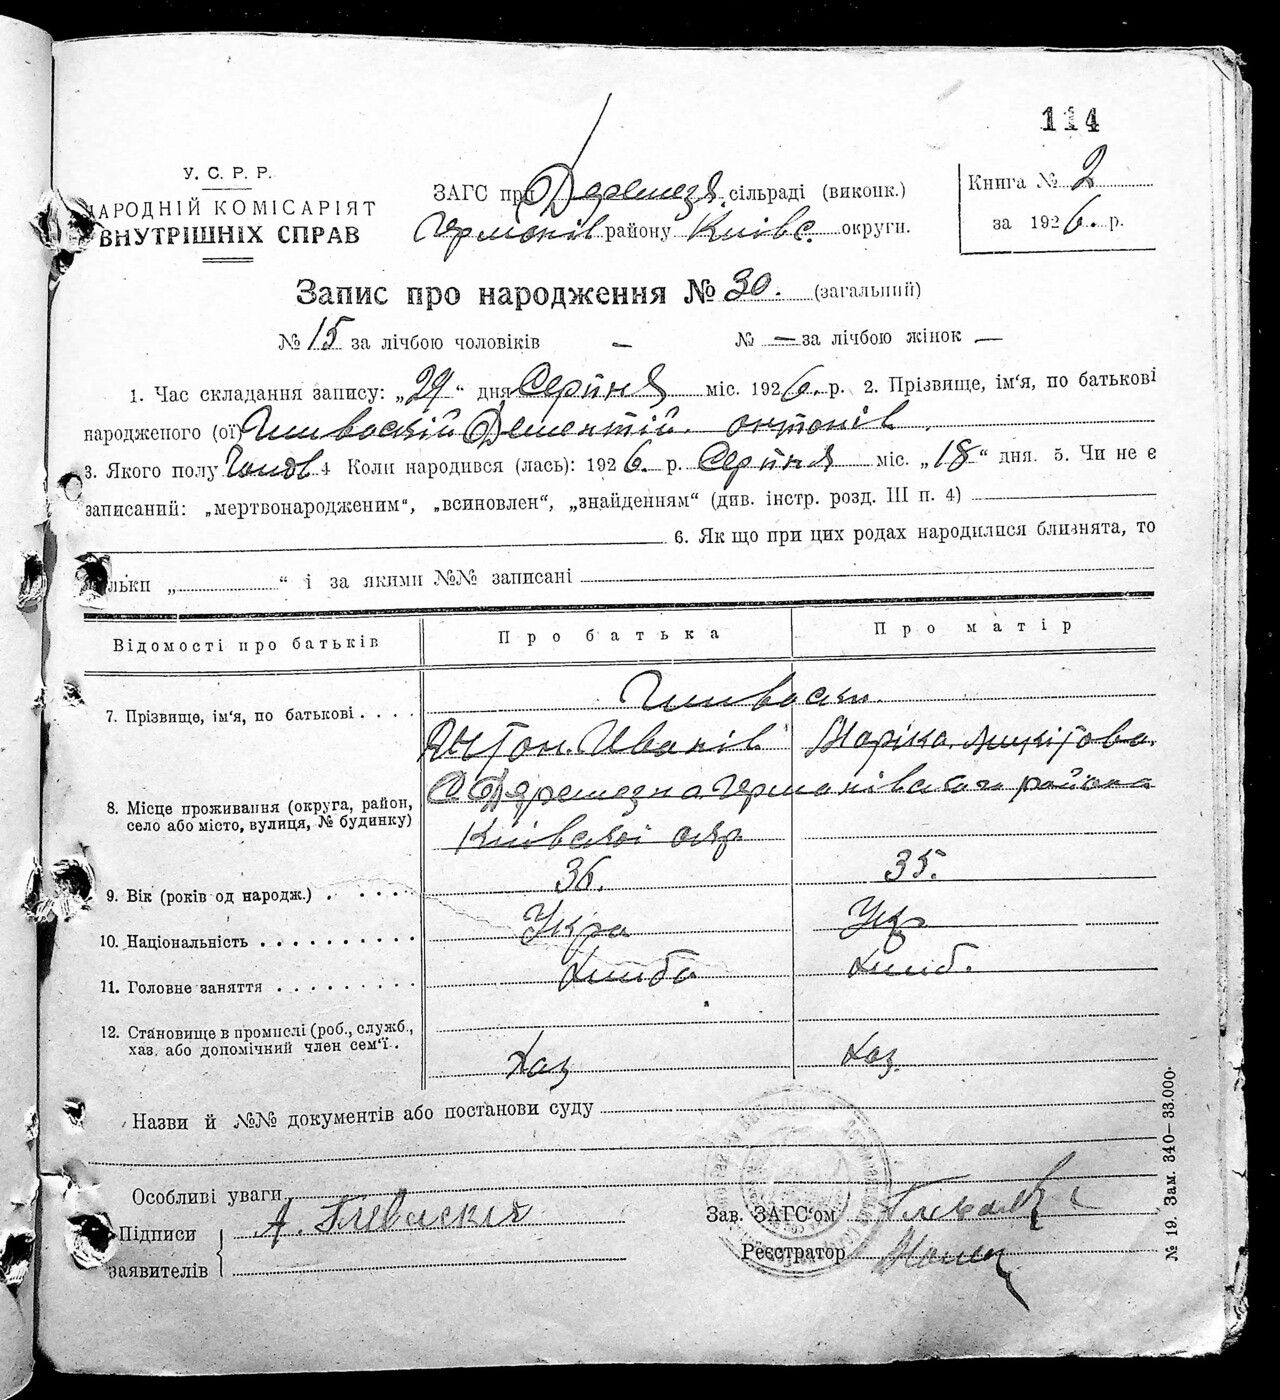 114
У. С. Р. Р.
НАРОДНІЙ КОМІСАРІЯТ
ВНУТРІШНІХ СПРАВ
ЗАГС при Деремезн. сільраді (виконк.)
Германів району Київс. округи.
Книга № 2
за 1926. р.
Запис про народження № 30. (загальний)
№ 15 за лічбою чоловіків – № – за лічбою жінок —
1. Час складання запису: „29“ дня Серпня міс. 1926. р. 2. Прізвище, ім'я, по батькові
народженого (ої) Дементій. Антонів.
3. Якого полу Чолов 4 Коли народився (лась): 1926. р. Серпня міс. „18“ дня. 5. Чи не є
записаний: „мертвонародженим“, „всиновлен“, „знайденням“ (див. інстр. розд. III п. 4)
6. Як що при цих родах народилися близнята, то
скільки „ “ і за якими №№ записані
Відомості про батьків Про батька Про матір
7. Прізвище, ім'я, по батькові
Антон. Иванів Маріка. Микітова.
8. Місце проживання (округа, район,
село або місто, вулиця, № будинку)
С Деремезна Германівського района
Київської окр
9. Вік (років од народж.) 36. 35.
10. Національність Укра Укр
11. Головне заняття Хліба Хліб.
12. Становище в промислі (роб., служб.,
хаз. або допомічний член сем'ї. Хаз Хаз.
Назви й №№ документів або постанови суду
Особливі уваги
Підписи
заявителів
А.
Зав. ЗАГС'ом
Реєстратор
№ 19. Зам. 340—33.000.